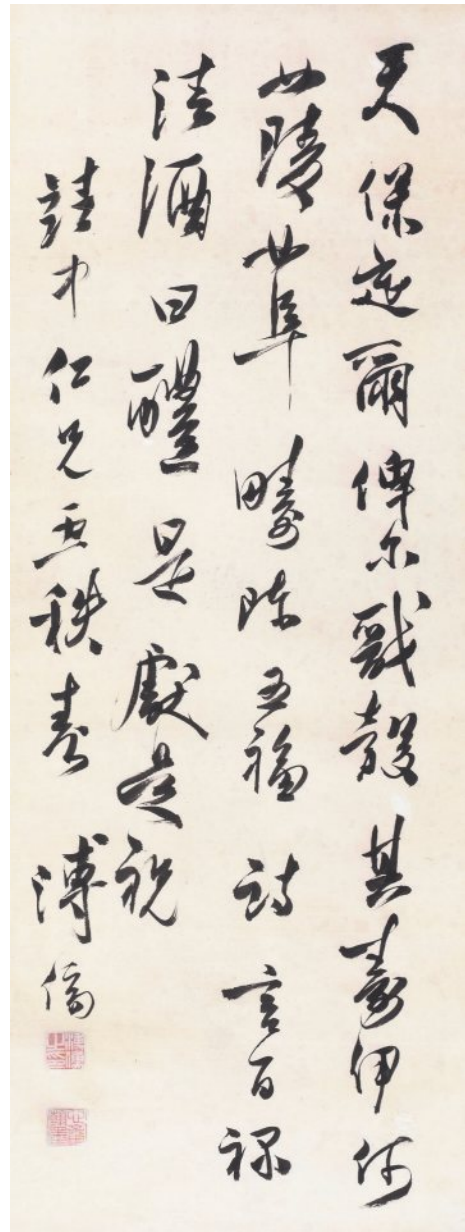 天保定爾俾尔戩穀其壽伊何
如陵如阜疇陳五福詩言百祿
清酒曰醴是獻是祝
詩才仁兄五秩壽 溥儒